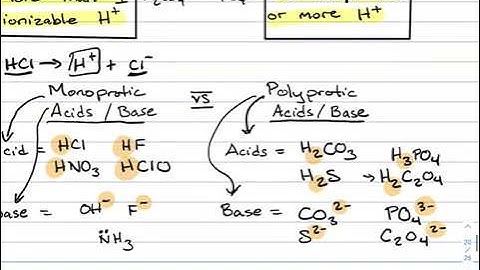 ionizable H⁺
or more H⁺
HCl → H⁺ + Cl⁻
Monoprotic vs Polyprotic
Acids / Base Acids / Base
cid = HCl HF
HNO₃ HClO
Acids = H₂CO₃ H₃PO₄
H₂S → H₂C₂O₄
base = OH⁻ F⁻
N̈H₃
Base = CO₃²⁻ PO₄³⁻
S²⁻ C₂O₄²⁻